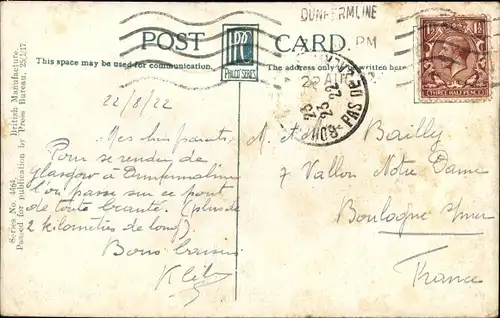 DUNFERMLINE
POST CARD.
PALCO SERIES
PM
This space may be used for communication.
The address only to be written here
22 AUG
THREE HALF PENCE
BOU PAS DE CALAIS
23
22
Series No. 4464. British Manufacture.
Passed for publication by Press Bureau, 25/1/17.
22/8/22
Mes chers parents,
Pour se rendre de
Glasgow à Dunfermline
l'on passe sur ce pont
de toute beauté. (plus de
2 kilomètres de long).
Bons baisers
M. et Bailly
7 Vallon Notre Dame
Boulogne s/mer
France